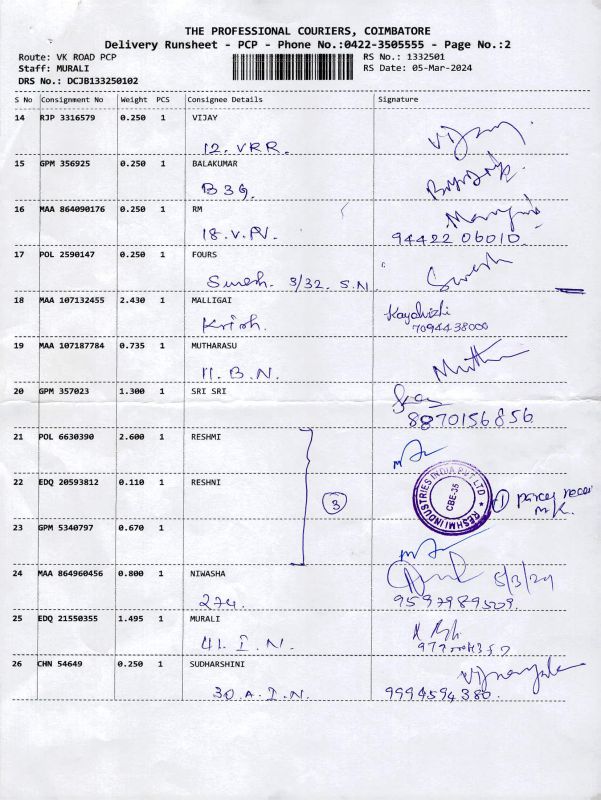 THE PROFESSIONAL COURIERS, COIMBATORE
Delivery Runsheet - PCP - Phone No.:0422-3505555 - Page No.:2
Route: VK ROAD PCP
Staff: MURALI
DRS No.: DCJB133250102
RS No.: 1332501
RS Date: 05-Mar-2024
S No Consignment No Weight PCS Consignee Details Signature
14 RJP 3316579 0.250 1 VIJAY
12. VRR. Vijay
15 GPM 356925 0.250 1 BALAKUMAR
B 39.
16 MAA 864090176 0.250 1 RM
18. V.PV. 94422 06010.
17 POL 2590147 0.250 1 FOURS Suresh
Suresh. 3/32. S.N
18 MAA 107132455 2.430 1 MALLIGAI
Krish. 7094438000
19 MAA 107187784 0.735 1 MUTHARASU
11. B.N. Muthu
20 GPM 357023 1.300 1 SRI SRI
8870156856
21 POL 6630390 2.600 1 RESHMI
22 EDQ 20593812 0.110 1 RESHNI
3
RESHMI INDUSTRIES INDIA PVT LTD
CBE-35
1 parcel
23 GPM 5340797 0.670 1
24 MAA 864960456 0.800 1 NIWASHA 5/3/24
274. 9597989509.
25 EDQ 21550355 1.495 1 MURALI
41. I. N.
26 CHN 54649 0.250 1 SUDHARSHINI
30. A. I. N. 9994594380.